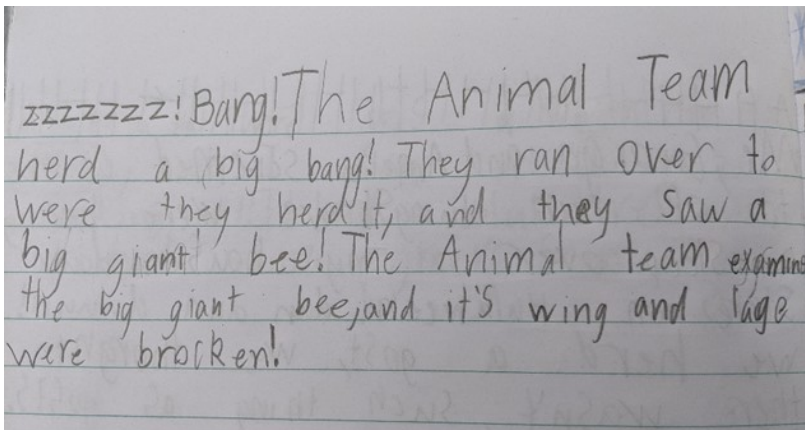 zzzzzzz! Bang! The Animal Team
herd a big bang! They ran over to
were they herd it, and they saw a
big giant bee! The Animal team examine
the big giant bee, and it's wing and lage
were brocken!